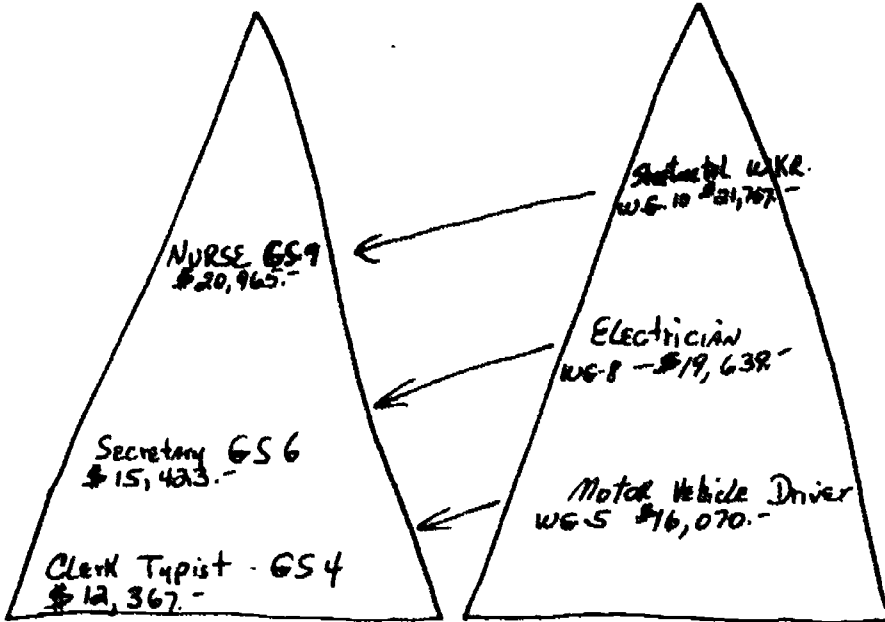 NURSE GS9
$20,965.-
Secretary GS 6
$15,423.-
Clerk Typist - GS 4
$12,367.-
Sheetmetal WKR.
WG-10 $21,767.-
Electrician
WG-8 - $19,639.-
Motor Vehicle Driver
WG-5 $16,070.-